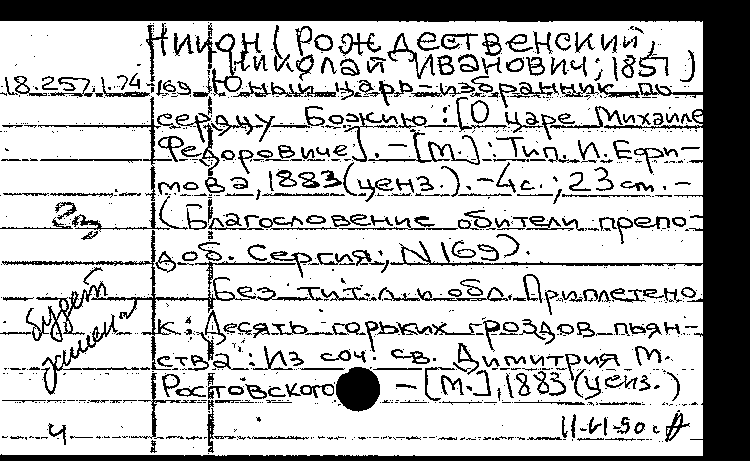 Никон (Рождественский,
Николай Иванович; 1857)
18.257.1.74-169 Юный царь-избранник по
сердцу Божию : [О царе Михаиле
Федоровиче]. - [М.] : Тип. И. Ефи-
мова, 1883 (ценз.). - 4с. ; 23 см. -
(Благословение обители препо-
доб. Сергия; N 169).
Без тит. л. и обл. Приплетено
к: Десять горьких гроздов пьян-
ства : Из соч. св. Димитрия М.
Ростовского - [М.], 1883 (ценз.)
будет
4